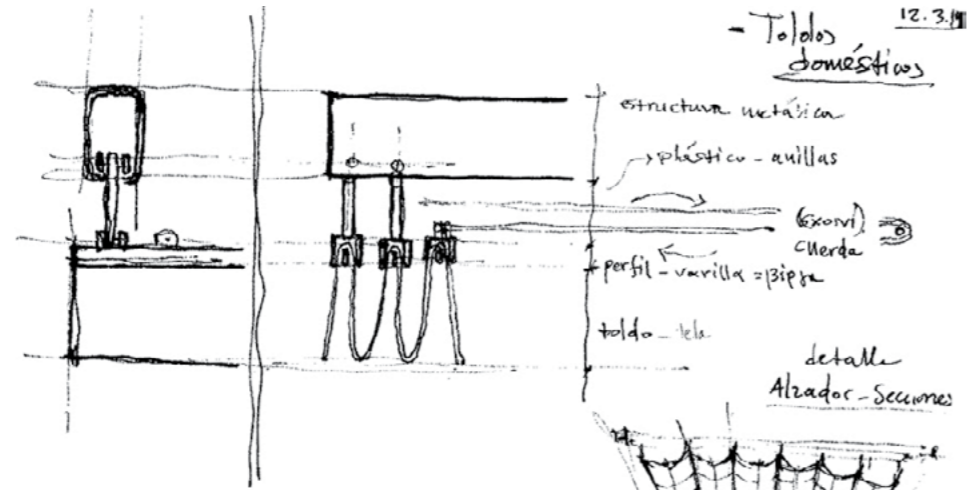 12.3.
- Toldos
domésticos
estructura metálica
plástico - anillas
cuerda
perfil - varilla =
toldo - tela
detalle
Alzados - Secciones